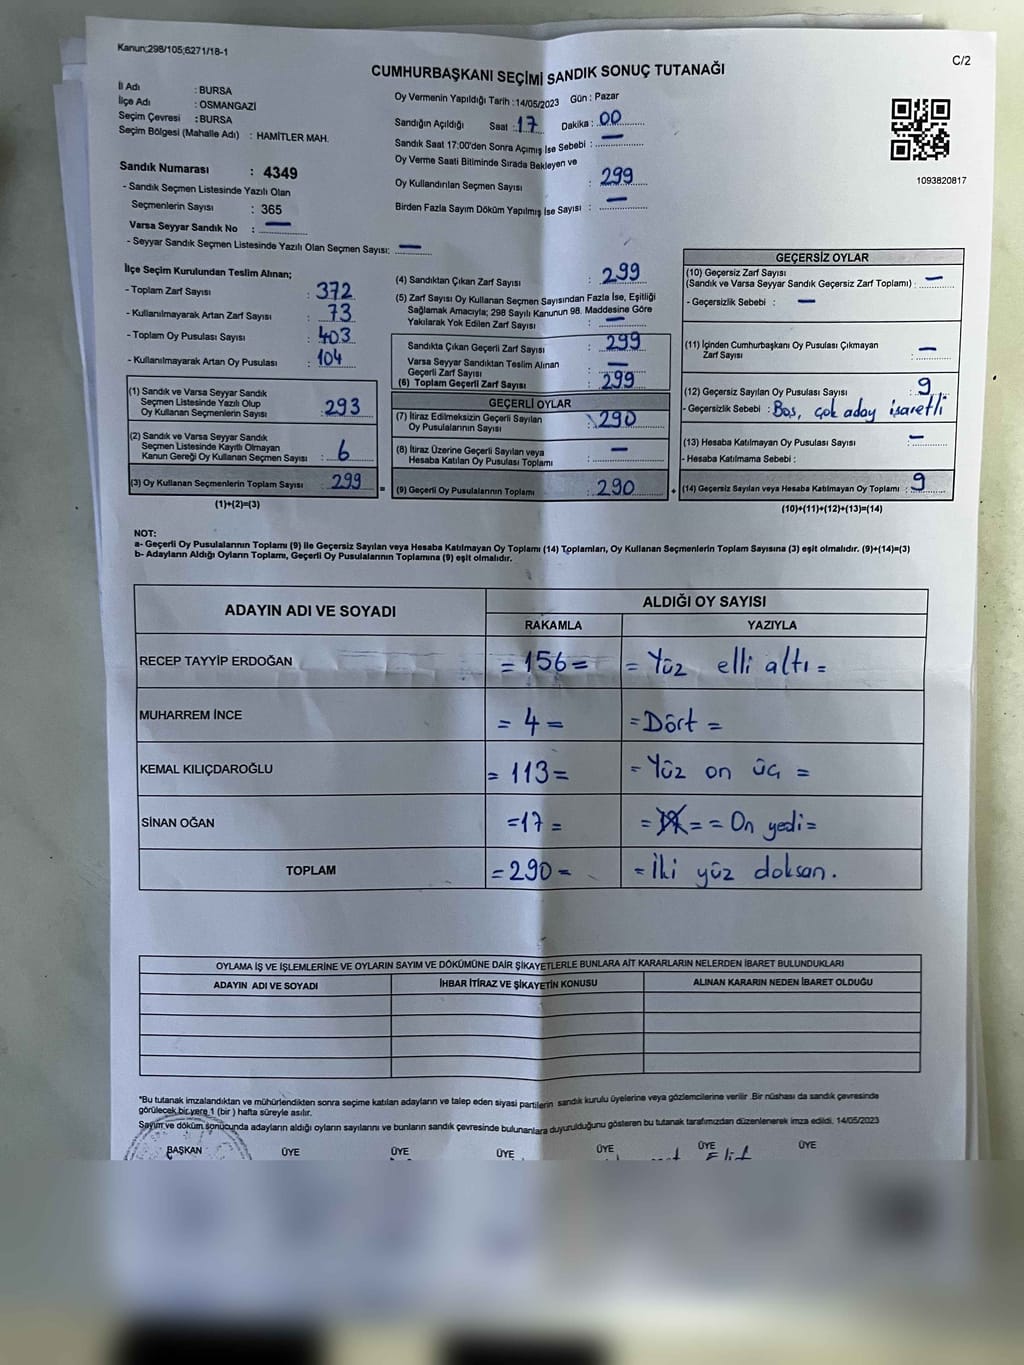 Kanun;298/105;6271/18-1
C/2
CUMHURBAŞKANI SEÇİMİ SANDIK SONUÇ TUTANAĞI
İl Adı : BURSA
İlçe Adı : OSMANGAZİ
Seçim Çevresi : BURSA
Seçim Bölgesi (Mahalle Adı) : HAMİTLER MAH.
Oy Vermenin Yapıldığı Tarih : 14/05/2023 Gün : Pazar
Sandığın Açıldığı Saat : 17 Dakika : 00
Sandık Saat 17:00'den Sonra Açılmış İse Sebebi : —
Oy Verme Saati Bitiminde Sırada Bekleyen ve
Oy Kullandırılan Seçmen Sayısı : 299
Birden Fazla Sayım Döküm Yapılmış İse Sayısı : —
1093820817
Sandık Numarası : 4349
- Sandık Seçmen Listesinde Yazılı Olan
Seçmenlerin Sayısı : 365
Varsa Seyyar Sandık No : —
- Seyyar Sandık Seçmen Listesinde Yazılı Olan Seçmen Sayısı: —
İlçe Seçim Kurulundan Teslim Alınan;
- Toplam Zarf Sayısı : 372
- Kullanılmayarak Artan Zarf Sayısı : 73
- Toplam Oy Pusulası Sayısı : 403
- Kullanılmayarak Artan Oy Pusulası : 104
(1) Sandık ve Varsa Seyyar Sandık
Seçmen Listesinde Yazılı Olup
Oy Kullanan Seçmenlerin Sayısı : 293
(2) Sandık ve Varsa Seyyar Sandık
Seçmen Listesinde Kayıtlı Olmayan
Kanun Gereği Oy Kullanan Seçmen Sayısı : 6
(3) Oy Kullanan Seçmenlerin Toplam Sayısı : 299
(1)+(2)=(3)
=
(4) Sandıktan Çıkan Zarf Sayısı : 299
(5) Zarf Sayısı Oy Kullanan Seçmen Sayısından Fazla İse, Eşitliği
Sağlamak Amacıyla; 298 Sayılı Kanunun 98. Maddesine Göre
Yakılarak Yok Edilen Zarf Sayısı : —
Sandıkta Çıkan Geçerli Zarf Sayısı : 299
Varsa Seyyar Sandıktan Teslim Alınan
Geçerli Zarf Sayısı : —
(6) Toplam Geçerli Zarf Sayısı : 299
GEÇERLİ OYLAR
(7) İtiraz Edilmeksizin Geçerli Sayılan
Oy Pusulalarının Sayısı : 290
(8) İtiraz Üzerine Geçerli Sayılan veya
Hesaba Katılan Oy Pusulası Toplamı : —
(9) Geçerli Oy Pusulalarının Toplamı : 290
+
GEÇERSİZ OYLAR
(10) Geçersiz Zarf Sayısı
(Sandık ve Varsa Seyyar Sandık Geçersiz Zarf Toplamı) : —
- Geçersizlik Sebebi : —
(11) İçinden Cumhurbaşkanı Oy Pusulası Çıkmayan
Zarf Sayısı : —
(12) Geçersiz Sayılan Oy Pusulası Sayısı : 9
- Geçersizlik Sebebi : Boş, çok aday işaretli
(13) Hesaba Katılmayan Oy Pusulası Sayısı : —
- Hesaba Katılmama Sebebi :
(14) Geçersiz Sayılan veya Hesaba Katılmayan Oy Toplamı : 9
(10)+(11)+(12)+(13)=(14)
NOT:
a- Geçerli Oy Pusulalarının Toplamı (9) ile Geçersiz Sayılan veya Hesaba Katılmayan Oy Toplamı (14) Toplamları, Oy Kullanan Seçmenlerin Toplam Sayısına (3) eşit olmalıdır. (9)+(14)=(3)
b- Adayların Aldığı Oyların Toplamı, Geçerli Oy Pusulalarının Toplamına (9) eşit olmalıdır.
ADAYIN ADI VE SOYADI ALDIĞI OY SAYISI
RAKAMLA YAZIYLA
RECEP TAYYİP ERDOĞAN = 156 = = Yüz elli altı =
MUHARREM İNCE = 4 = = Dört =
KEMAL KILIÇDAROĞLU = 113 = = Yüz on üç =
SİNAN OĞAN = 17 = = = = On yedi =
TOPLAM = 290 = = İki yüz doksan.
OYLAMA İŞ VE İŞLEMLERİNE VE OYLARIN SAYIM VE DÖKÜMÜNE DAİR ŞİKAYETLERLE BUNLARA AİT KARARLARIN NELERDEN İBARET BULUNDUKLARI
ADAYIN ADI VE SOYADI İHBAR İTİRAZ VE ŞİKAYETİN KONUSU ALINAN KARARIN NEDEN İBARET OLDUĞU
*Bu tutanak imzalandıktan ve mühürlendikten sonra seçime katılan adayların ve talep eden siyasi partilerin sandık kurulu üyelerine veya gözlemcilerine verilir. Bir nüshası da sandık çevresinde
görülecek bir yere 1 (bir) hafta süreyle asılır.
Sayım ve döküm sonucunda adayların aldığı oyların sayılarını ve bunların sandık çevresinde bulunanlara duyurulduğunu gösteren bu tutanak tarafımızdan düzenlenerek imza edildi. 14/05/2023
BAŞKAN ÜYE ÜYE ÜYE ÜYE ÜYE ÜYE
Elif